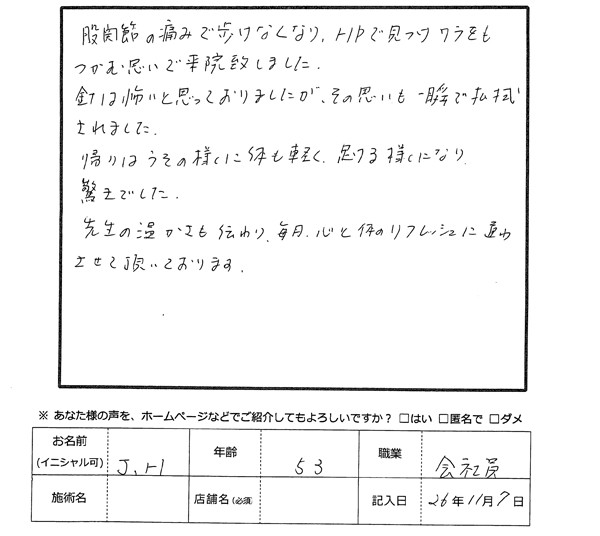 股関節の痛みで歩けなくなり、HPで見つけワラをも
つかむ思いで来院致しました.
針は怖いと思っておりましたが、その思いも一瞬で払拭
されました.
帰りはうその様に体も軽く、歩ける様になり
驚きでした.
先生の温かさも伝わり、毎月、心と体のリフレッシュに通わ
させて頂いております.
※ あなた様の声を、ホームページなどでご紹介してもよろしいですか? □はい □匿名で □ダメ
お名前 (イニシャル可) J.H 年齢 53 職業 会社員
施術名 店舗名(必須) 記入日 26年11月7日